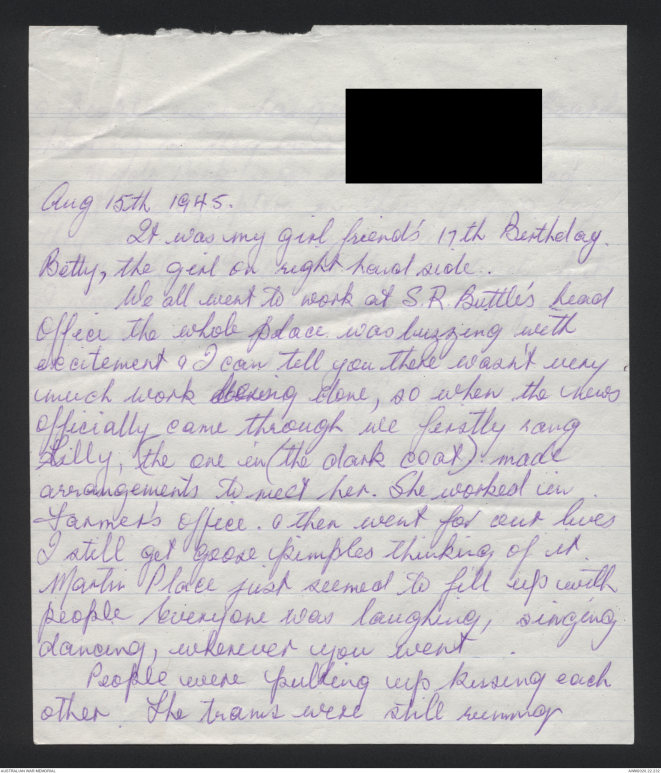 Aug 15th 1945.
It was my girl friend's 17th Birthday.
Betty, the girl on right hand side.
We all went to work at S.R. Buttle's head
Office the whole place was buzzing with
excitement & I can tell you there wasn't very
much work doing done, so when the news
officially came through we firstly rang
Lilly, (the one in (the dark coat) made
arrangements to meet her. She worked in
Farmer's office. & then went for our lives
I still get goose pimples thinking of it.
Martin Place just seemed to fill up with
people everyone was laughing, singing
dancing, wherever you went.
People were pulling up kissing each
other. The trams were still running
AUSTRALIAN WAR MEMORIAL